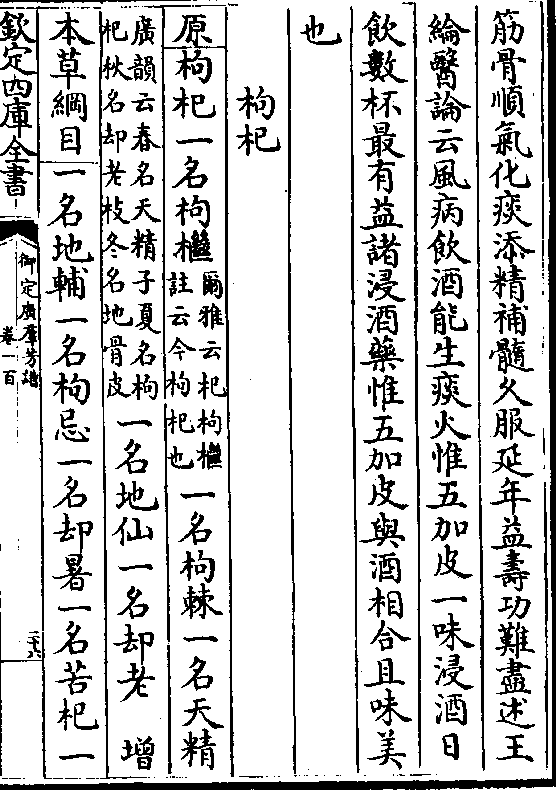 筋骨順氣化痰添精補髓久服延年益壽功難盡述王
綸醫論云風病飲酒能生痰火惟五加皮一味浸酒日
飲數杯最有益諸浸酒藥惟五加皮與酒相合且味美
也
枸杞
原枸杞一名枸檵爾雅云杞枸檵註云今枸杞也一名枸棘一名天精
廣韻云春名天精子夏名枸杞秋名却老枝冬名地骨皮一名地仙一名却老 增
本草綱目一名地輔一名枸忌一名却暑一名苦杞一
欽定四庫全書
御定廣羣芳譜
卷一百